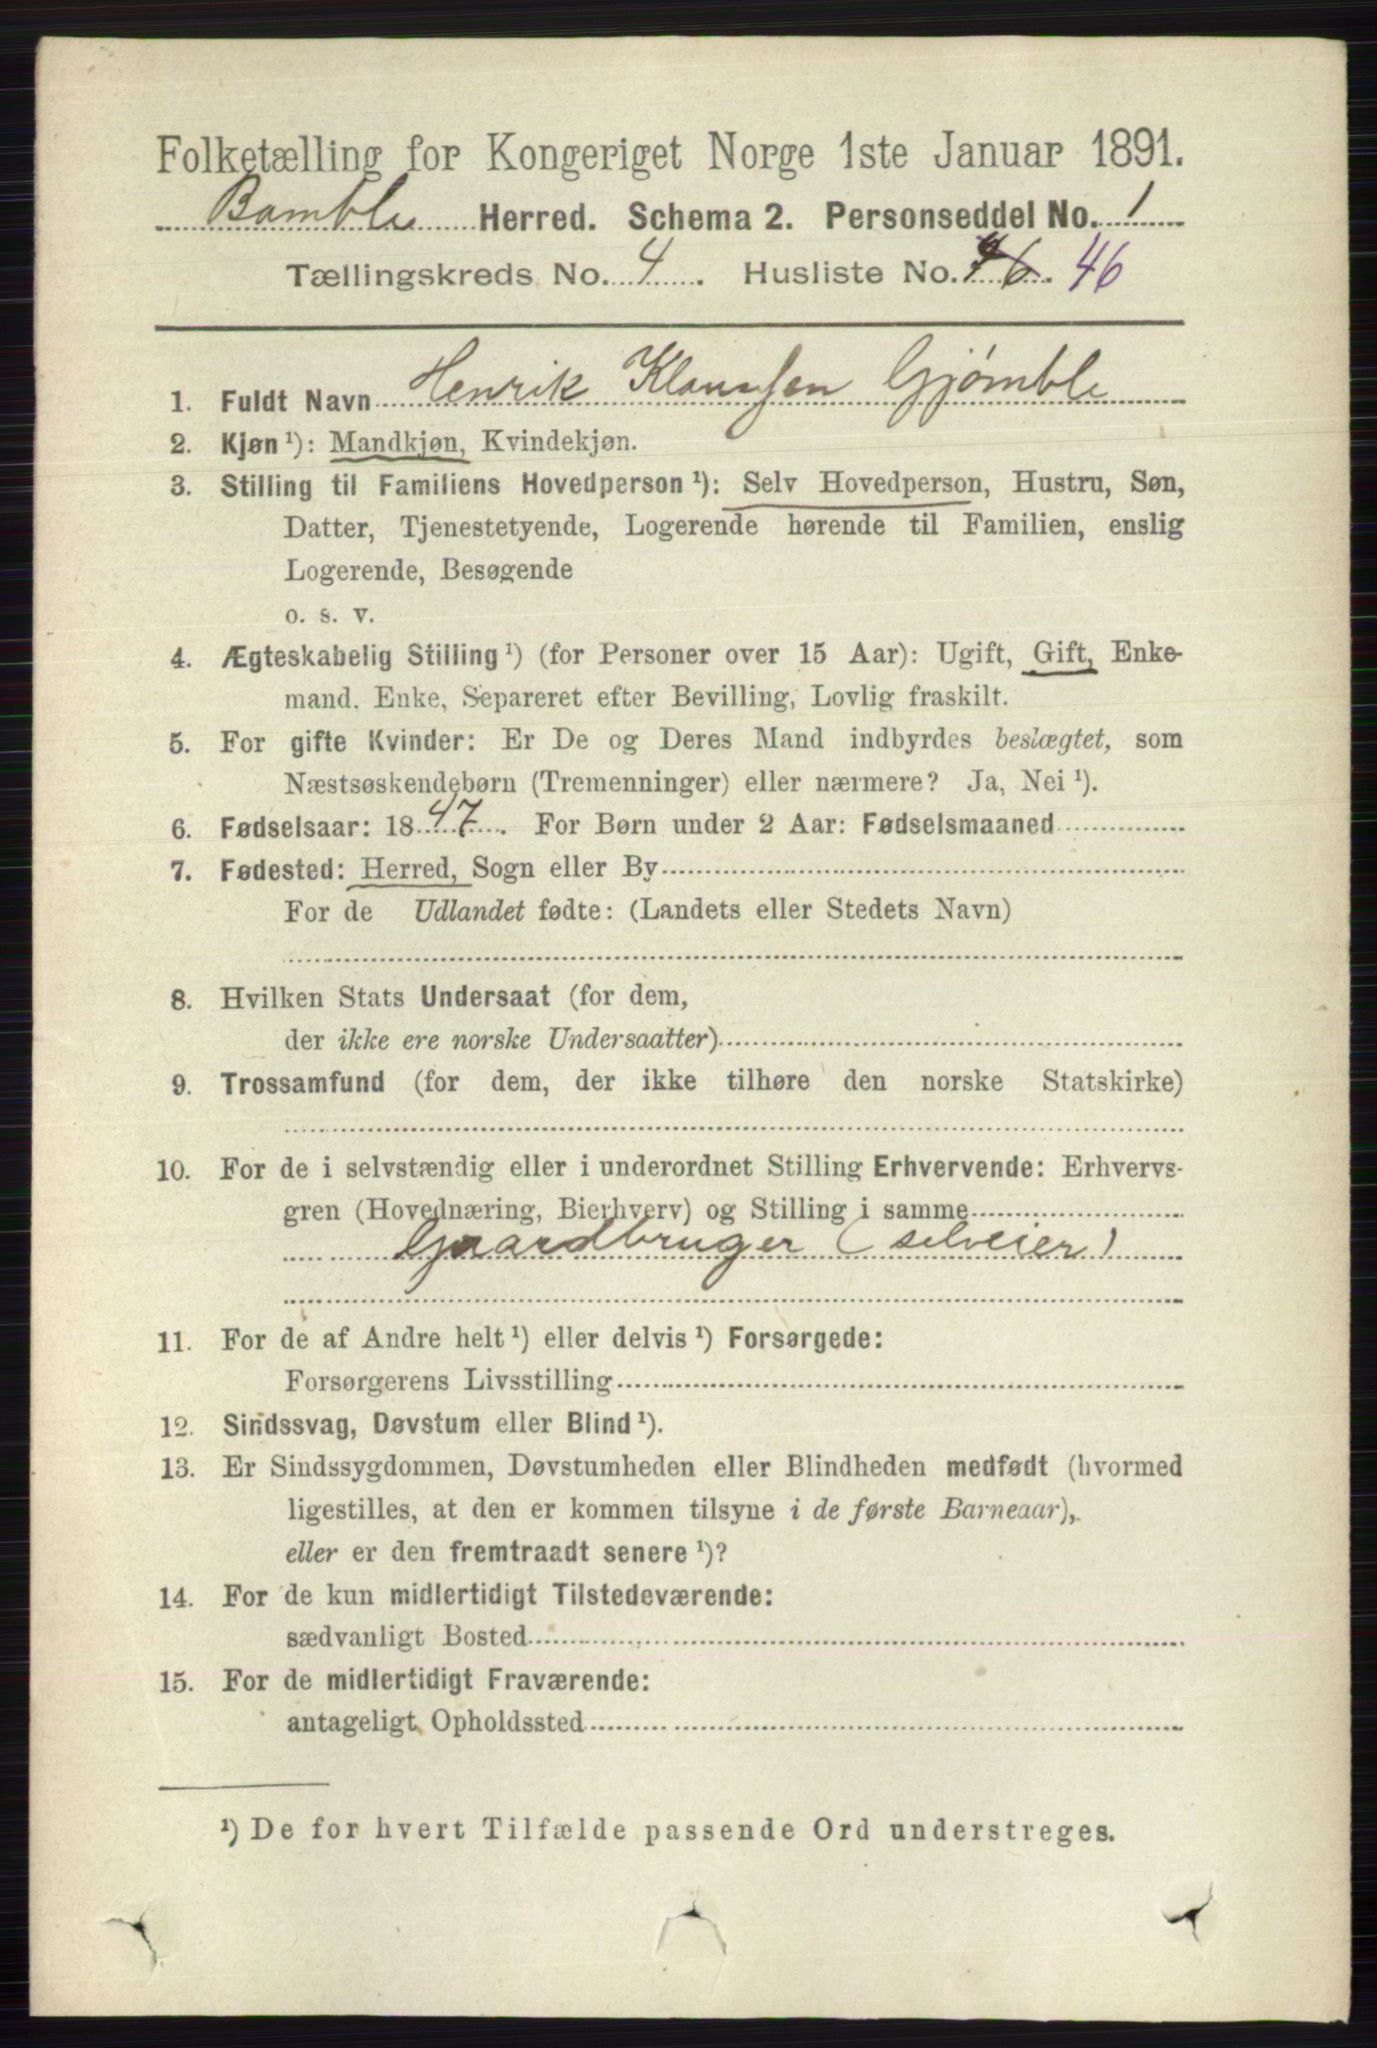 Folketælling for Kongeriget Norge 1ste Januar 1891.
Bamble Herred. Schema 2. Personseddel No. 1
Tællingskreds No. 4. Husliste No. 46. 46
1. Fuldt Navn Henrik Klausen Gjømble
2. Kjøn ¹): Mandkjøn, Kvindekjøn.
3. Stilling til Familiens Hovedperson ¹): Selv Hovedperson, Hustru, Søn,
Datter, Tjenestetyende, Logerende hørende til Familien, enslig
Logerende, Besøgende
o. s. v.
4. Ægteskabelig Stilling ¹) (for Personer over 15 Aar): Ugift, Gift, Enke-
mand. Enke, Separeret efter Bevilling, Lovlig fraskilt.
5. For gifte Kvinder: Er De og Deres Mand indbyrdes beslægtet, som
Næstsøskendebørn (Tremenninger) eller nærmere? Ja, Nei ¹).
6. Fødselsaar: 1847. For Børn under 2 Aar: Fødselsmaaned
7. Fødested: Herred, Sogn eller By
For de Udlandet fødte: (Landets eller Stedets Navn)
8. Hvilken Stats Undersaat (for dem,
der ikke ere norske Undersaatter)
9. Trossamfund (for dem, der ikke tilhøre den norske Statskirke)
10. For de i selvstændig eller i underordnet Stilling Erhvervende: Erhvervs-
gren (Hovednæring, Bierhverv) og Stilling i samme
Gaardbruger (selveier)
11. For de af Andre helt ¹) eller delvis ¹) Forsørgede:
Forsørgerens Livsstilling
12. Sindssvag, Døvstum eller Blind ¹).
13. Er Sindssygdommen, Døvstumheden eller Blindheden medfødt (hvormed
ligestilles, at den er kommen tilsyne i de første Barneaar),
eller er den fremtraadt senere ¹)?
14. For de kun midlertidigt Tilstedeværende:
sædvanligt Bosted
15. For de midlertidigt Fraværende:
antageligt Opholdssted
¹) De for hvert Tilfælde passende Ord understreges.